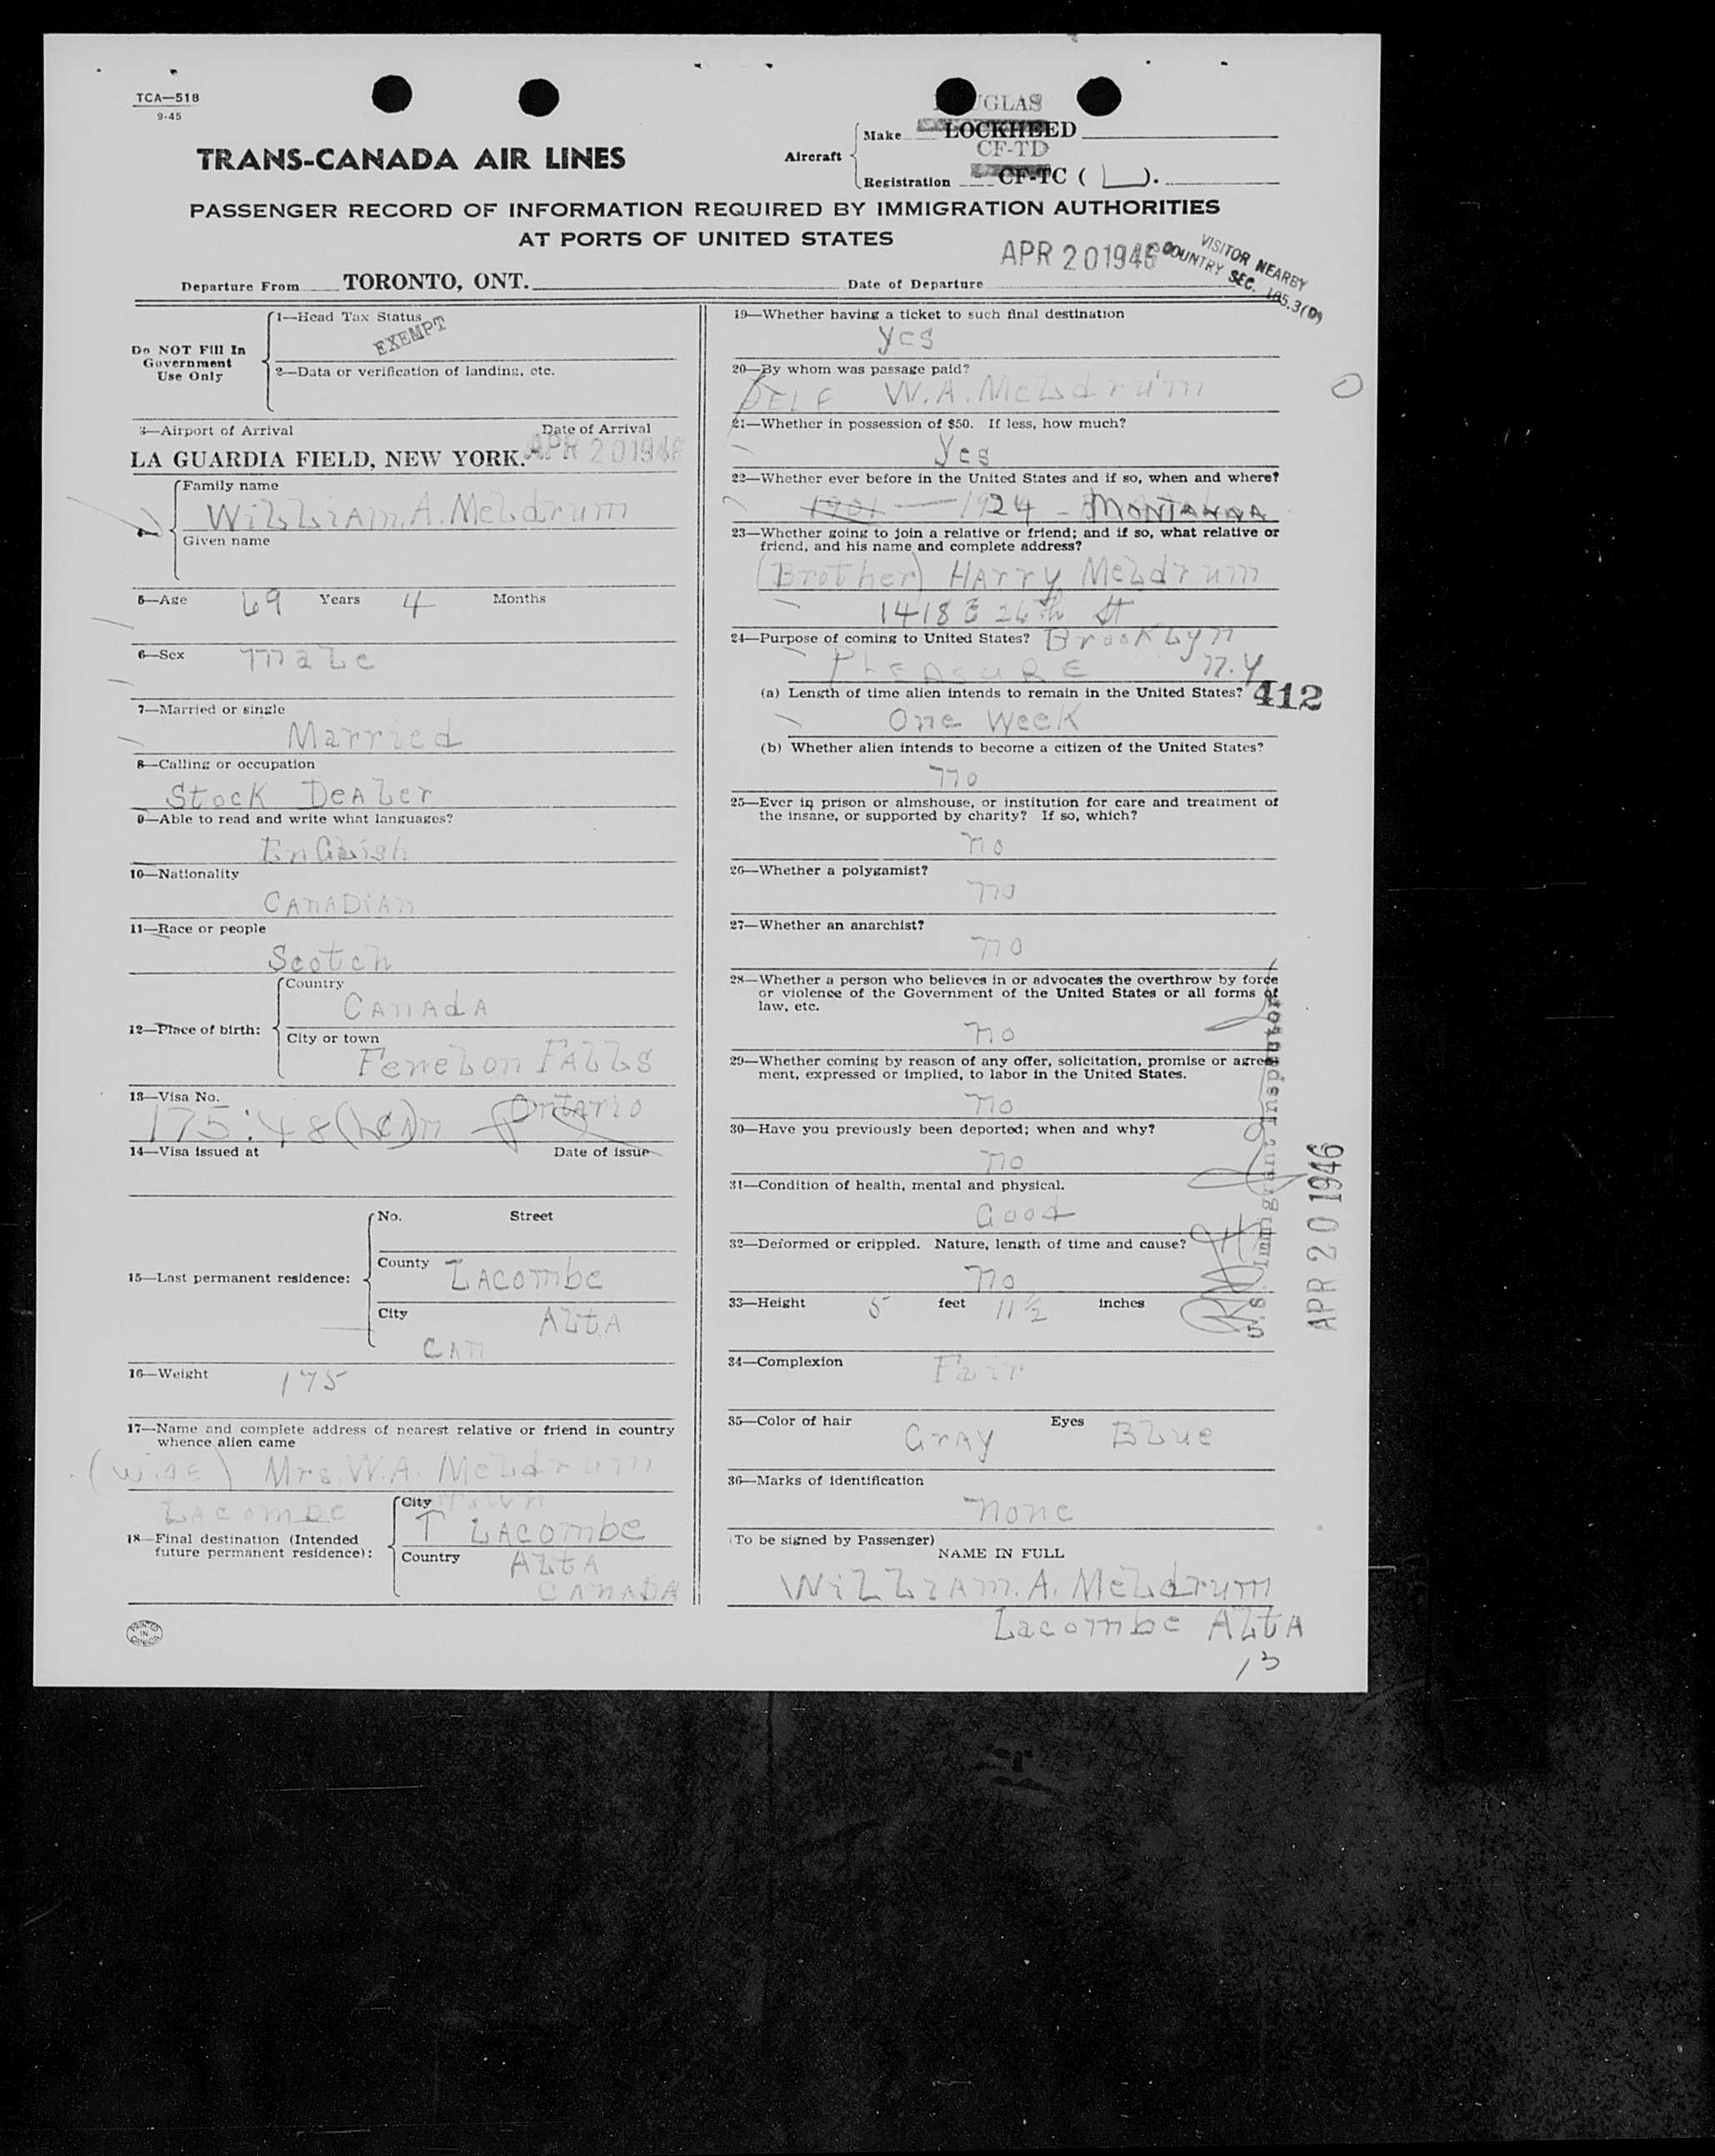 TCA—518
9-45
TRANS-CANADA AIR LINES
UGLAS
Aircraft
Make LOCKHEED
CF-TD
Registration CF-TC ( L ).
PASSENGER RECORD OF INFORMATION REQUIRED BY IMMIGRATION AUTHORITIES
AT PORTS OF UNITED STATES
APR 20 1946
VISITOR NEARBY
COUNTRY SEC. 105.3(D)
Departure From TORONTO, ONT.
Date of Departure
Do NOT Fill In
Government
Use Only
1—Head Tax Status
EXEMPT
2—Data or verification of landing, etc.
3—Airport of Arrival
Date of Arrival
LA GUARDIA FIELD, NEW YORK.
APR 20 1946
Family name
WiLLiAm.A.MeLdrum
Given name
5—Age 69 Years 4 Months
6—Sex maLe
7—Married or single
Married
8—Calling or occupation
Stock DeALer
9—Able to read and write what languages?
EnGLish
10—Nationality
CAnADiAn
11—Race or people
Scotch
12—Place of birth:
Country
CAnAdA
City or town
FeneLon FALLS
Ontario
13—Visa No.
175:48
14—Visa issued at
Date of issue
15—Last permanent residence:
No. Street
County LAcombe
City ALtA
CAn
16—Weight 175
17—Name and complete address of nearest relative or friend in country
whence alien came
(WiFE) Mrs. W.A. MeLdrum
LAcombe
18—Final destination (Intended
future permanent residence):
City Town
T LAcombe
Country ALtA
CAnADA
PRINTED
IN
CANADA
19—Whether having a ticket to such final destination
yes
20—By whom was passage paid?
SELF W.A.MeLdrum
21—Whether in possession of $50. If less, how much?
Yes
22—Whether ever before in the United States and if so, when and where?
1901 — 1924 - MONTANNA
23—Whether going to join a relative or friend; and if so, what relative or
friend, and his name and complete address?
(Brother) HArry MeLdrum
1418 E 26th St
24—Purpose of coming to United States? BrookLyn
PLEASURE n.y
(a) Length of time alien intends to remain in the United States? 412
One Week
(b) Whether alien intends to become a citizen of the United States?
no
25—Ever in prison or almshouse, or institution for care and treatment of
the insane, or supported by charity? If so, which?
no
26—Whether a polygamist?
no
27—Whether an anarchist?
no
28—Whether a person who believes in or advocates the overthrow by force
or violence of the Government of the United States or all forms of
law, etc.
no
29—Whether coming by reason of any offer, solicitation, promise or agree-
ment, expressed or implied, to labor in the United States.
no
30—Have you previously been deported; when and why?
no
31—Condition of health, mental and physical.
Good
32—Deformed or crippled. Nature, length of time and cause?
no
33—Height 5 feet 11½ inches
34—Complexion Fair
35—Color of hair GrAy Eyes BLue
36—Marks of identification
none
(To be signed by Passenger)
NAME IN FULL
WiLLiAm.A.MeLdrum
Lacombe ALtA
13
U.S. Immigrant Inspector
APR 20 1946